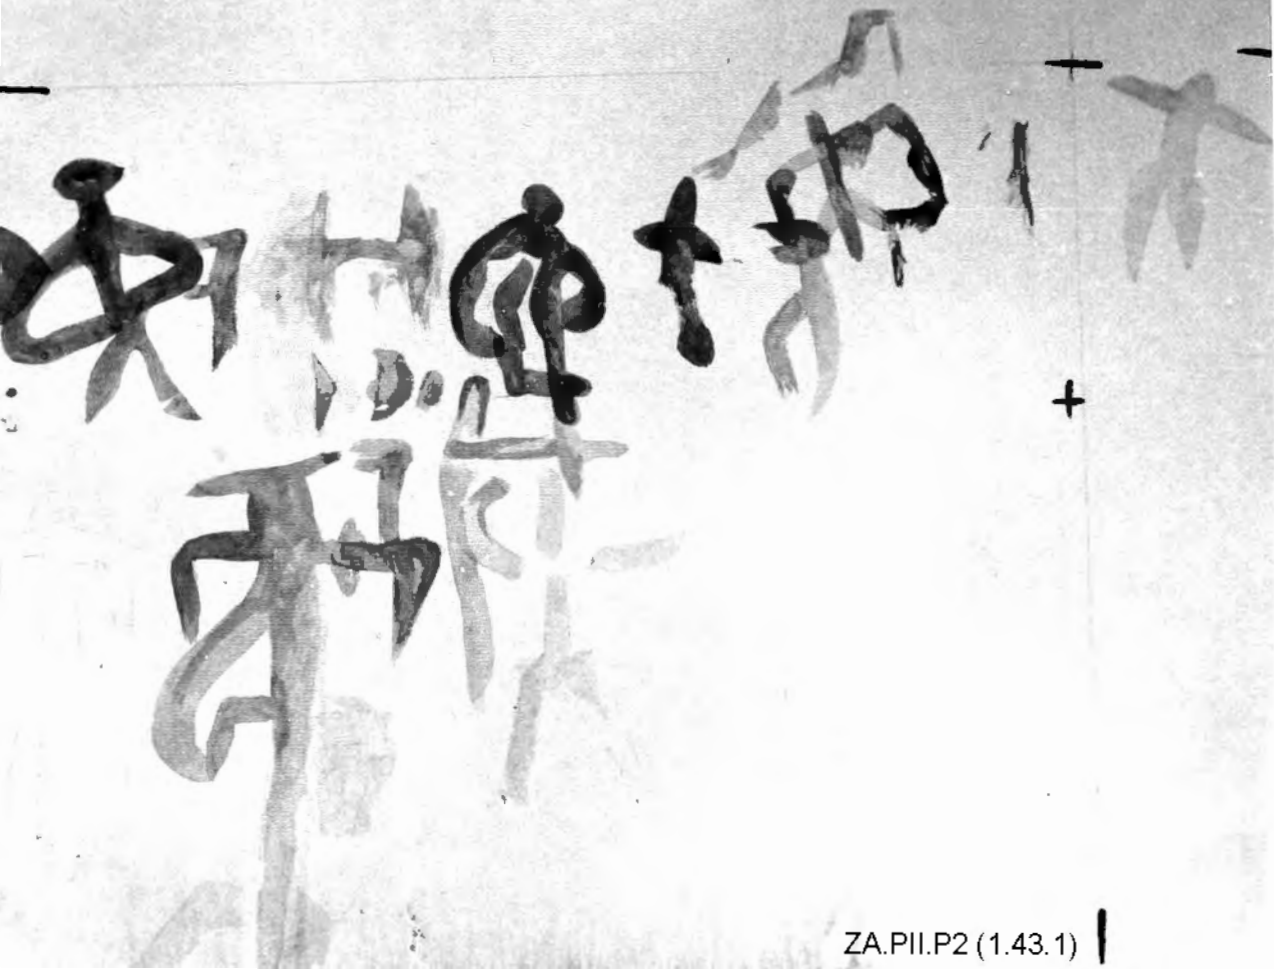 ZA.PII.P2 (1.43.1)